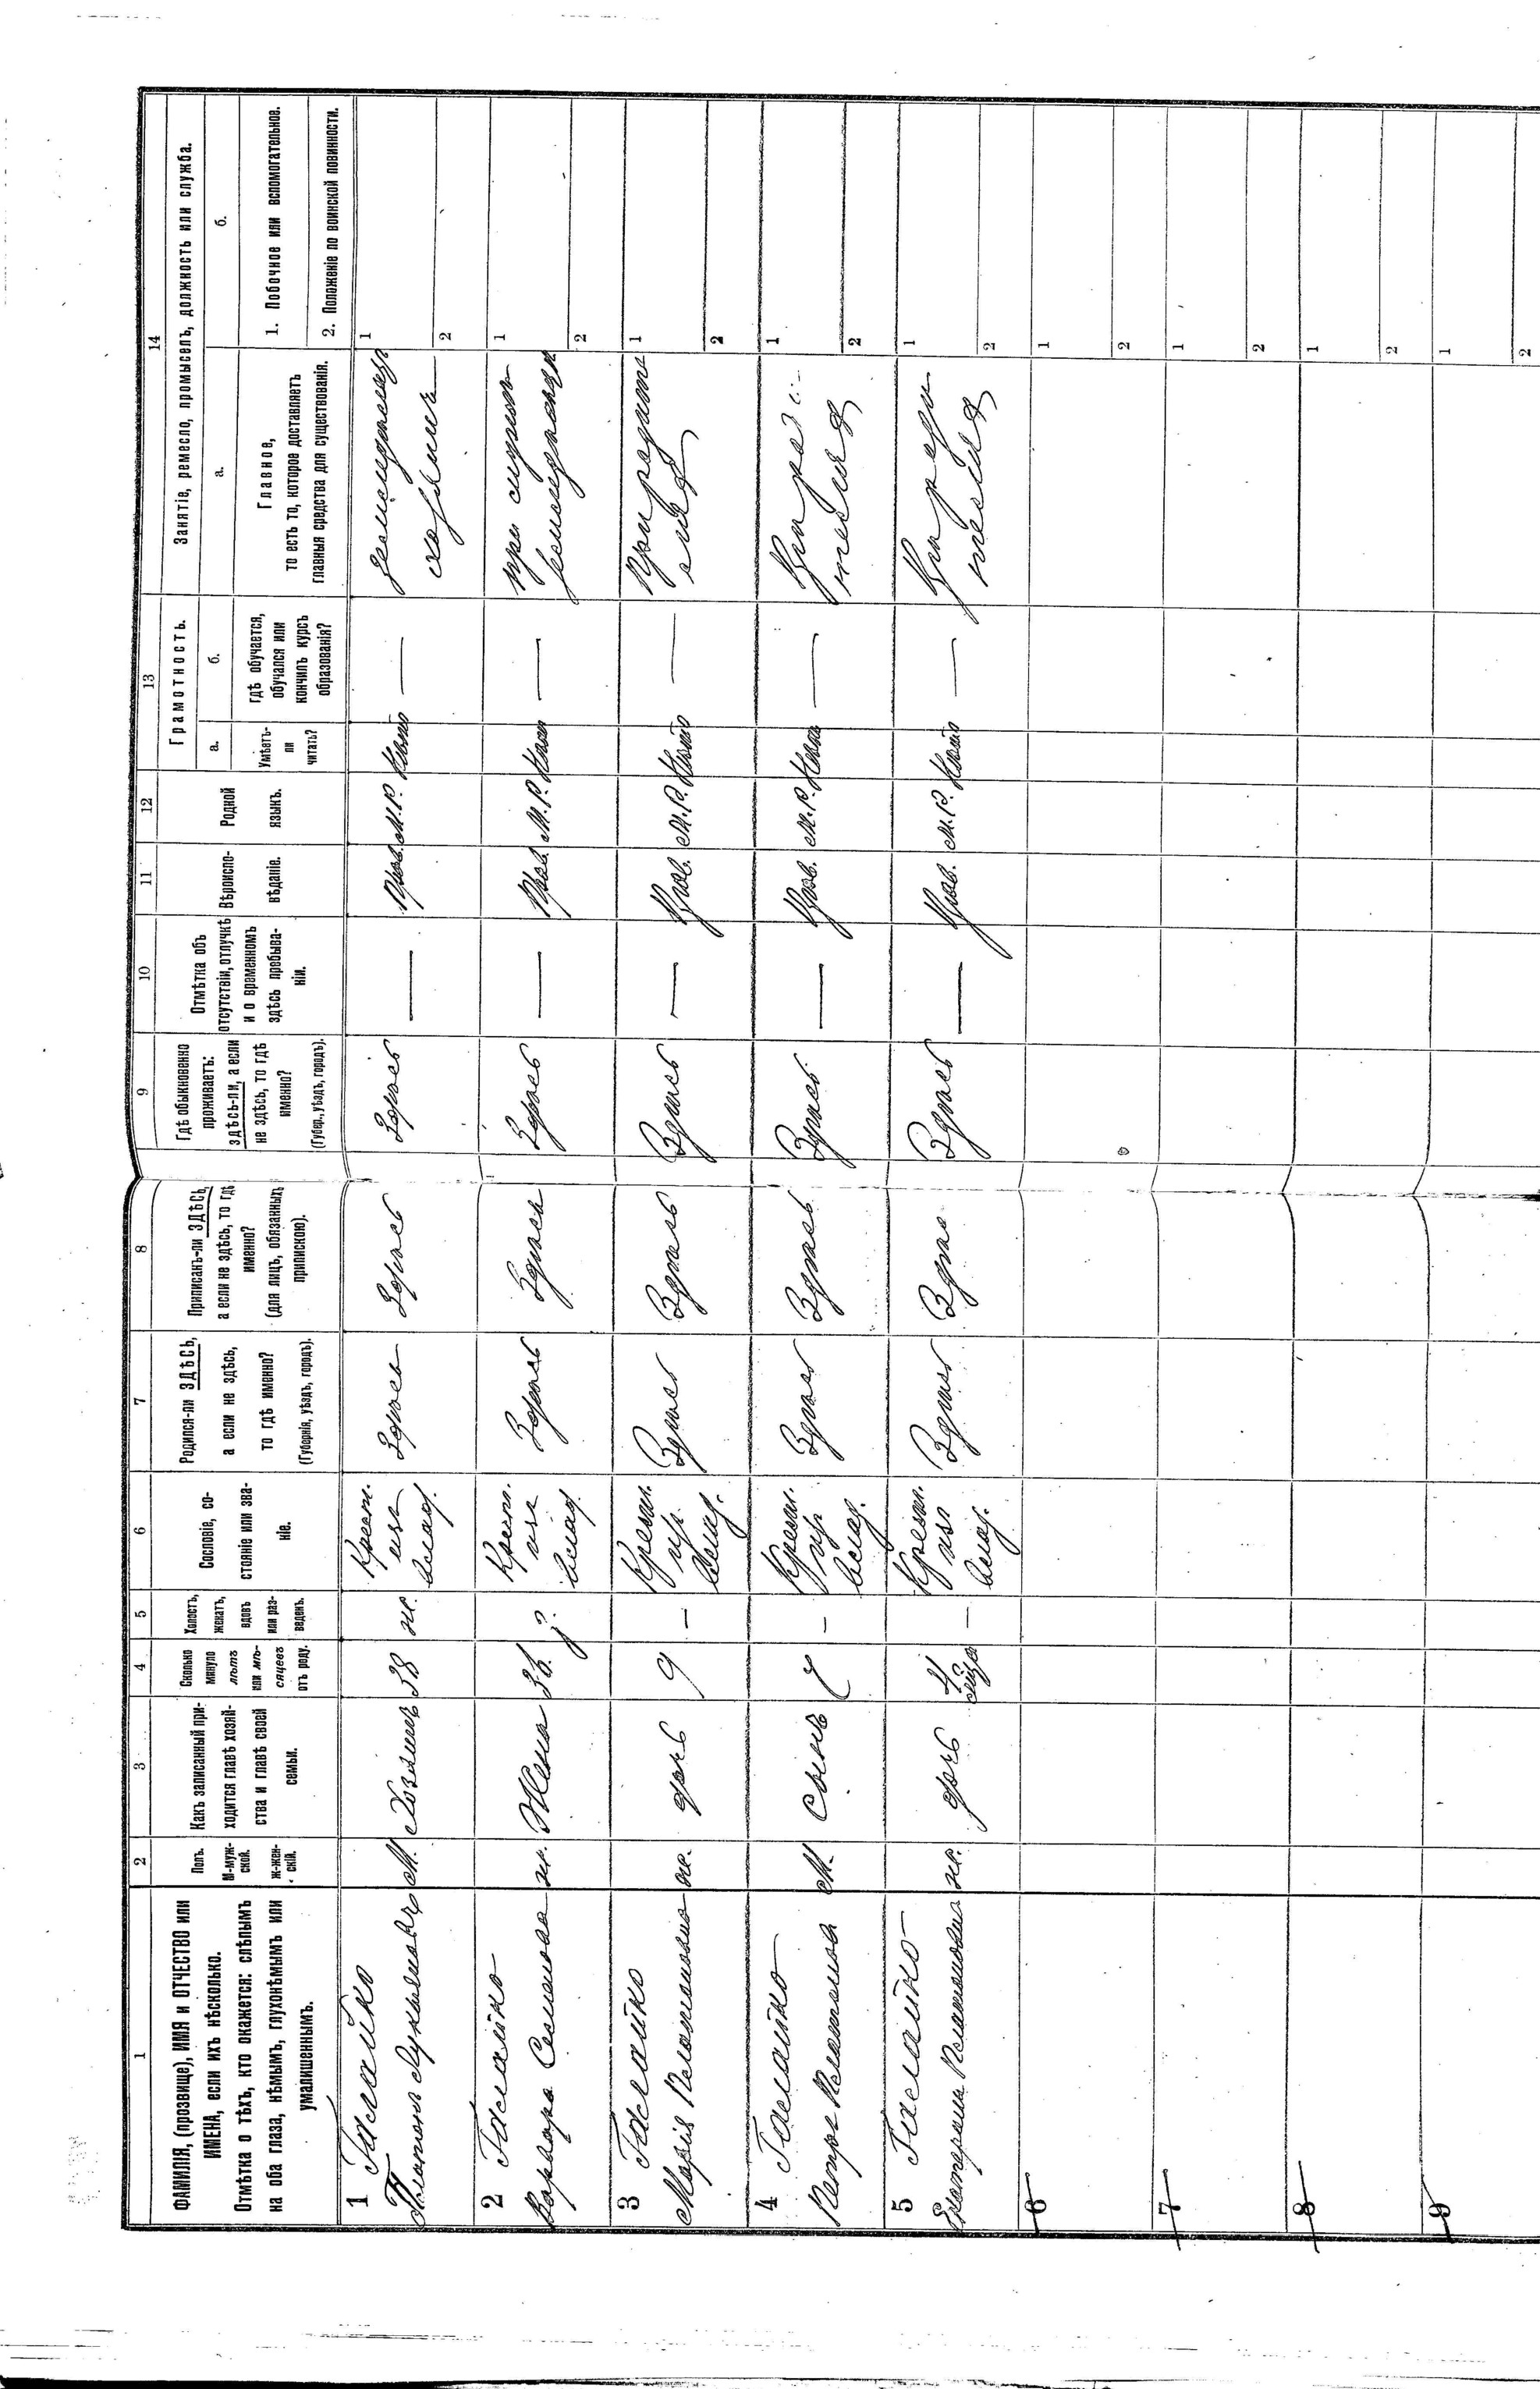 1
2
3
4
5
6
7
8
9
10
11
12
13
14
ФАМИЛІЯ, (прозвище), ИМЯ и ОТЧЕСТВО или
ИМЕНА, если ихъ нѣсколько.
Отмѣтка о тѣхъ, кто окажется: слѣпымъ
на оба глаза, нѣмымъ, глухонѣмымъ или
умалишеннымъ.
Полъ.
М-муж-
ской.
ж-жен-
скій.
Какъ записанный при-
ходится главѣ хозяй-
ства и главѣ своей
семьи.
Сколько
минуло
лѣтъ
или мѣ-
сяцевъ
отъ роду.
Холостъ,
женатъ,
вдовъ
или раз-
веденъ.
Сословіе, со-
стояніе или зва-
ніе.
Родился-ли ЗДѢСЬ,
а если не здѣсь,
то гдѣ именно?
(Губернія, уѣздъ, городъ).
Приписанъ-ли ЗДѢСЬ,
а если не здѣсь, то гдѣ
именно?
(для лицъ, обязанныхъ
припискою).
Гдѣ обыкновенно
проживаетъ:
здѣсь-ли, а если
не здѣсь, то гдѣ
именно?
(Губер., уѣздъ, городъ).
Отмѣтка объ
отсутствіи, отлучкѣ
и о временномъ
здѣсь пребыва-
ніи.
Вѣроиспо-
вѣданіе.
Родной
языкъ.
Грамотность.
а.
Умѣетъ-
ли
читать?
б.
Гдѣ обучается,
обучался или
кончилъ курсъ
образованія?
Занятіе, ремесло, промыселъ, должность или служба.
а.
Главное,
то есть то, которое доставляетъ
главныя средства для существованія.
б.
1. Побочное или вспомогательное.
2. Положеніе по воинской повинности.
1 Гаслайко
Платонъ Лукьяновичъ
М.
Хозяинъ
38
ж.
Крест.
изъ
влад.
Здѣсь
Здѣсь
Здѣсь
—
Прав.
М.Р.
Нѣтъ
—
1
2
2 Гаслайко
Варвара Семенова
ж.
Жена
36.
з.
Крест.
изъ
влад.
Здѣсь
Здѣсь
Здѣсь
—
Прав.
М.Р.
Нѣтъ
—
при мужѣ
1
2
3 Гаслайко
Марія Платоновна
ж.
дочь
9
—
Крестьян.
изъ
влад.
Здѣсь
Здѣсь
Здѣсь
—
Прав.
М.Р.
Нѣтъ
—
При родит
еляхъ
1
2
4 Гаслайко
Петръ Платоновъ
М.
сынъ
—
Крестьян.
изъ
влад.
Здѣсь
Здѣсь
Здѣсь
—
Прав.
М.Р.
Нѣтъ
—
При роди
теляхъ
1
2
5 Гаслайко
Екатерина Платоновна
ж.
дочь
—
Крестьян.
изъ
влад.
Здѣсь
Здѣсь
Здѣсь
—
Прав.
М.Р.
Нѣтъ
—
При роди
теляхъ
1
2
6
1
2
7
1
2
8
1
2
9
1
2